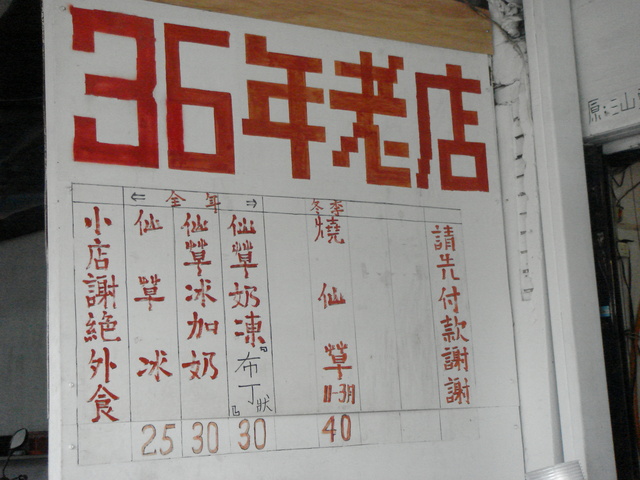 36年老店
⇐ 全年 ⇒
冬季
小店謝絕外食
仙草冰
25
仙草冰加奶
30
仙草奶凍『布丁狀』
30
燒仙草
11-3月
40
請先付款謝謝